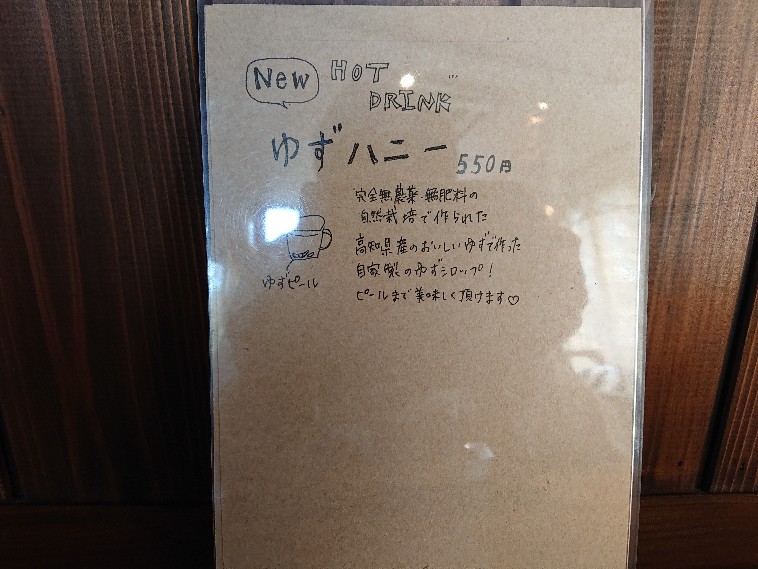 New
HOT
DRINK
ゆずハニー 550円
完全無農薬・無肥料の
自然栽培で作られた
高知県産のおいしいゆずで作った
自家製のゆずシロップ!
ピールまで美味しく頂けます♡
ゆずピール